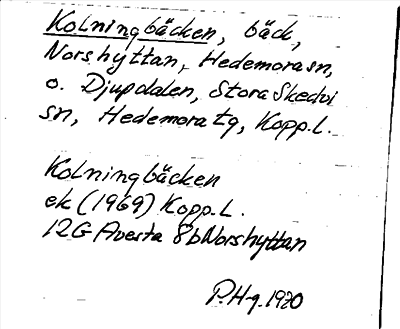 Kolningbäcken, bäck,
Norshyttan, Hedemorasn,
o. Djupdalen, Stora Skedvi
sn, Hedemora tg, Kopp.l.
Kolningbäcken
ek (1969) Kopp.L.
12G Avesta 8b Norshyttan
P.H-g. 1970